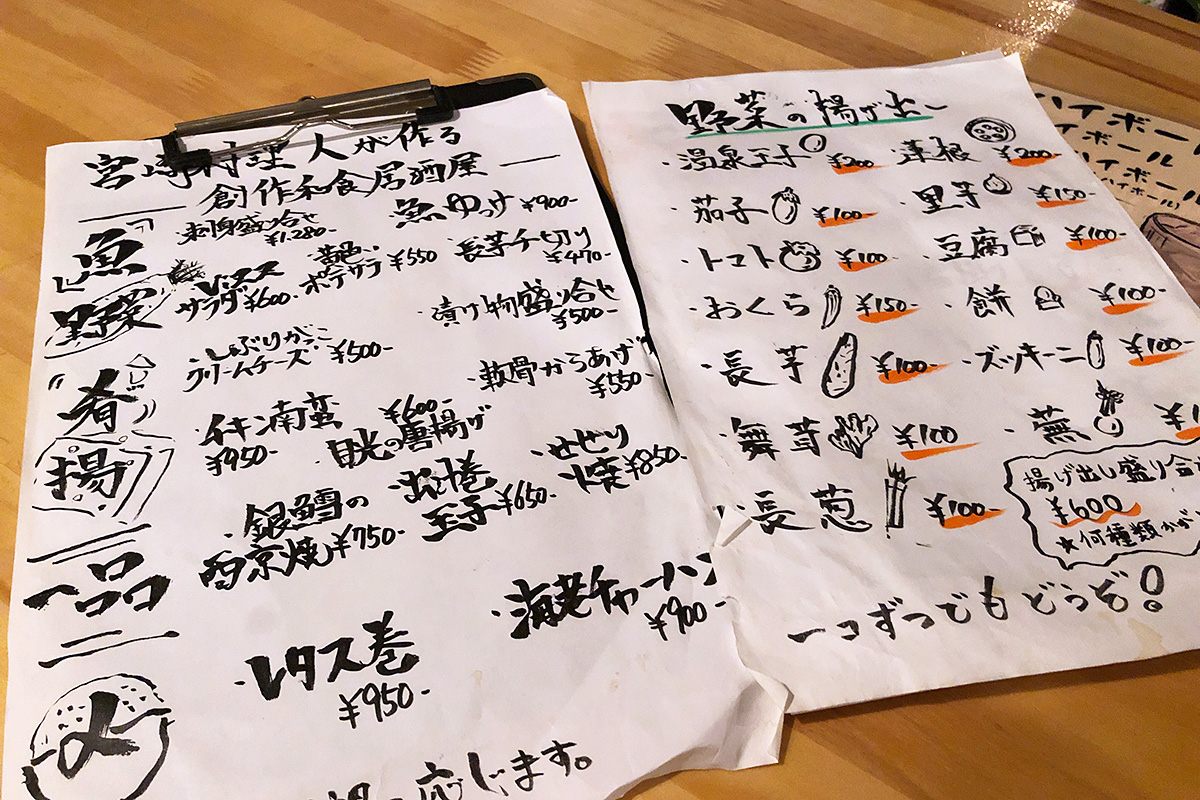 宮崎料理人が作る
創作和食居酒屋
魚
刺身盛り合せ
¥1.280-
魚ゆっけ ¥900-
野菜
サラダ ¥600-
ポテサラ ¥550
長芋千切り
¥470-
漬け物盛り合せ
¥500-
肴
・いぶりがっこ
クリームチーズ ¥500-
・軟骨からあげ
¥550-
揚
・チキン南蛮
¥950-
¥600-
・目光の唐揚げ
・せせり
焼 ¥850-
一品
・銀鱈の
西京焼 ¥750-
出し巻
玉子 ¥650-
〆
・レタス巻
¥950-
・海老チャーハン
¥900-
応じます。
野菜の揚げ出し
・温泉玉子 ¥200
・蓮根 ¥200-
・茄子 ¥100-
・里芋 ¥150-
・トマト ¥100-
・豆腐 ¥100-
・おくら ¥150-
・餅 ¥100-
・長芋 ¥100-
・ズッキーニ ¥100-
・舞茸 ¥100
・蕪
・長葱 ¥100-
揚げ出し盛り合
¥600
★何種類かが
一つずつでもどうぞ!
ハイボール
ボール
ハイボール
ハイボール